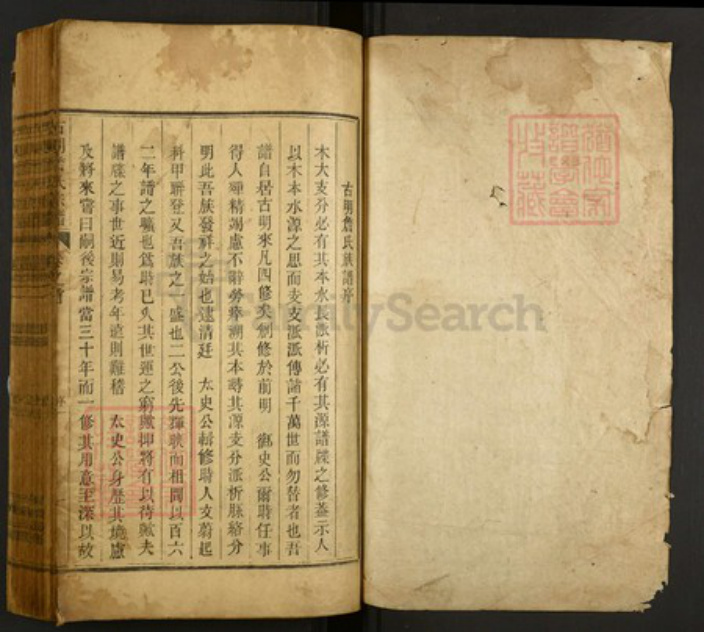 古明詹氏族譜序
木大支分必有其本水長派析必有其源譜牒之修蓋示人
以木本水源之思而支支派派傳諸千萬世而勿替者也吾
譜自居古明來凡四修矣創修於前明 御史公爾時任事
得人殫精竭慮不辭勞瘁溯其本尋其源支分派析脈絡分
明此吾族發祥之始也逮清廷 太史公輯修時人文蔚起
科甲聯登又吾族之一盛也二公後先輝映而相閱以百六
二年譜之曠也爲時已久其世運之窮歟抑將有以待歟夫
譜牒之事世近則易考年遠則難稽 太史公身歷其境慮
及將來嘗曰嗣後宗譜當三十年而一修其用意至深以故
FamilySearch